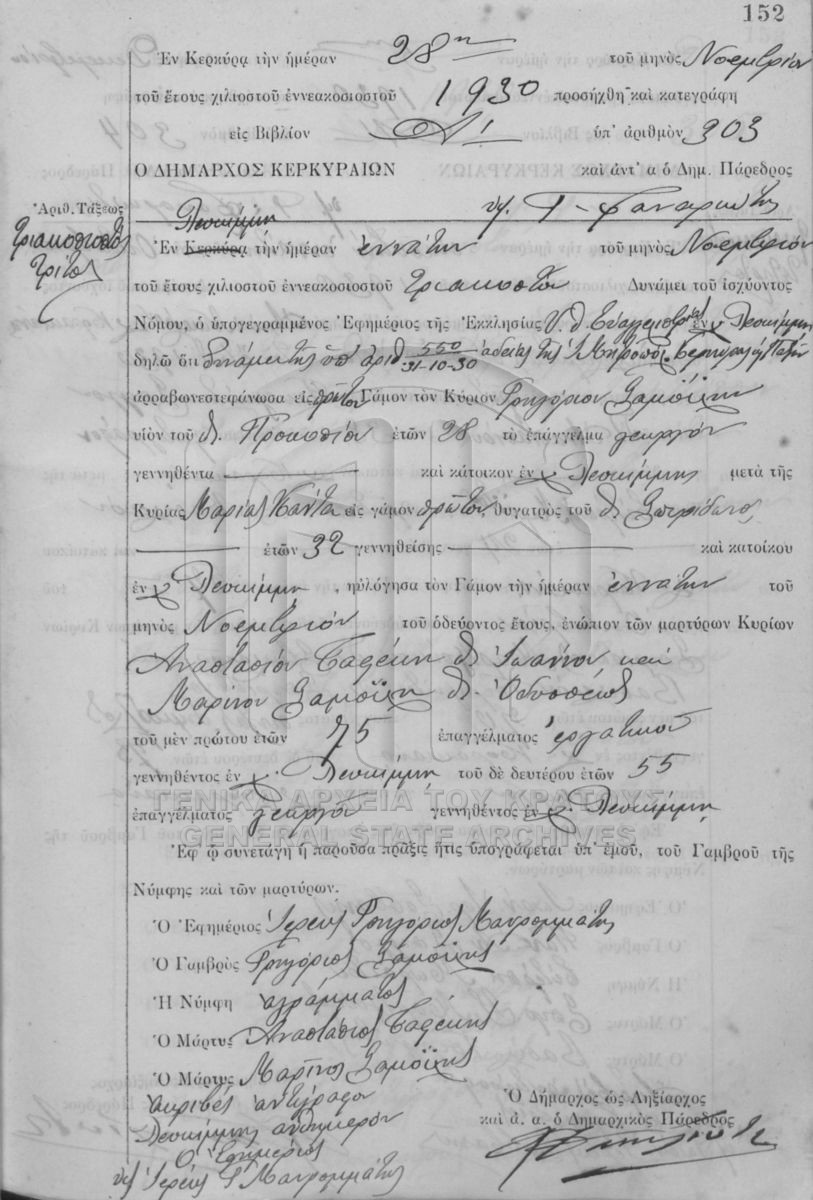 152
Ἐν Κερκύρᾳ τὴν ἡμέραν 28ην τοῦ μηνὸς Νοεμβρίου
τοῦ ἔτους χιλιοστοῦ ἐννεακοσιοστοῦ 1930 προσήχθη καὶ κατεγράφη
εἰς Βιβλίον Α1 ὑπ' ἀριθμὸν 303
Ο ΔΗΜΑΡΧΟΣ ΚΕΡΚΥΡΑΙΩΝ καὶ ἀντ' α ὁ Δημ. Πάρεδρος
Ἀριθ. Τάξεως
τριακοσιοστὸς
τρίτος
Λευκίμμη
Ἐν Κερκύρᾳ τὴν ἡμέραν ἐννάτην τοῦ μηνὸς Νοεμβρίου
τοῦ ἔτους χιλιοστοῦ ἐννεακοσιοστοῦ τριακοστοῦ Δυνάμει τοῦ ἰσχύοντος
Νόμου, ὁ ὑπογεγραμμένος Ἐφημέριος τῆς Ἐκκλησίας Υ. Θ. Εὐαγγελιστρίας ἐν Λευκίμμη
δηλῶ ὅτι δυνάμει τῆς ὑπ' ἀριθ 550/31-10-30 ἀδείας τῆς Ἱ. Μητροπόλ. Κερκύρας & Παξῶν
ἀρραβωνεστεφάνωσα εἰς πρῶτον Γάμον τὸν Κύριον Γρηγόριον Σαμοΐλην
υἱὸν τοῦ Θ. Προκοπίου ἐτῶν 28 τὸ ἐπάγγελμα γεωργὸν
γεννηθέντα καὶ κάτοικον ἐν Λευκίμμης μετὰ τῆς
Κυρίας Μαρίας Κάντα εἰς γάμον πρῶτον, θυγατρὸς τοῦ Θ. Σπυρίδωνος
ἐτῶν 32 γεννηθείσης καὶ κατοίκου
ἐν Λευκίμμη, ηὐλόγησα τὸν Γάμον τὴν ἡμέραν ἐννάτην τοῦ
μηνὸς Νοεμβρίου τοῦ ὁδεύοντος ἔτους, ἐνώπιον τῶν μαρτύρων Κυρίων
Ἀναστάσιον Θ. Ἰωάννου καὶ
Μαρίνον Σαμοΐλη Θ. Ὀδυσσέως
τοῦ μὲν πρώτου ἐτῶν 75 ἐπαγγέλματος ἐργατικοῦ
γεννηθέντος ἐν Λευκίμμη τοῦ δὲ δευτέρου ἐτῶν 55
ἐπαγγέλματος γεωργοῦ γεννηθέντος ἐν Λευκίμμη
ΓΕΝΙΚΑ ΑΡΧΕΙΑ ΤΟΥ ΚΡΑΤΟΥΣ
GENERAL STATE ARCHIVES
Ἐφ ᾧ συνετάγη ἡ παροῦσα πρᾶξις ἥτις ὑπογράφεται ὑπ' ἐμοῦ, τοῦ Γαμβροῦ τῆς
Νύμφης καὶ τῶν μαρτύρων.
Ὁ Ἐφημέριος Ἱερεὺς Γρηγόριος Μαυρομμάτης
Ὁ Γαμβρὸς Γρηγόριος Σαμοΐλης
Ἡ Νύμφη ἀγράμματος
Ὁ Μάρτυς Ἀναστάσιος
Ὁ Μάρτυς Μαρῖνος Σαμοΐλης
Ἀκριβὲς ἀντίγραφον
Λευκίμμη αὐθημερόν
Ὁ Ἐφημέριος
υπ Ἱερεὺς Γ Μαυρομμάτης
Ὁ Δήμαρχος ὡς Ληξίαρχος
καὶ ἀ. α. ὁ Δημαρχικὸς Πάρεδρος